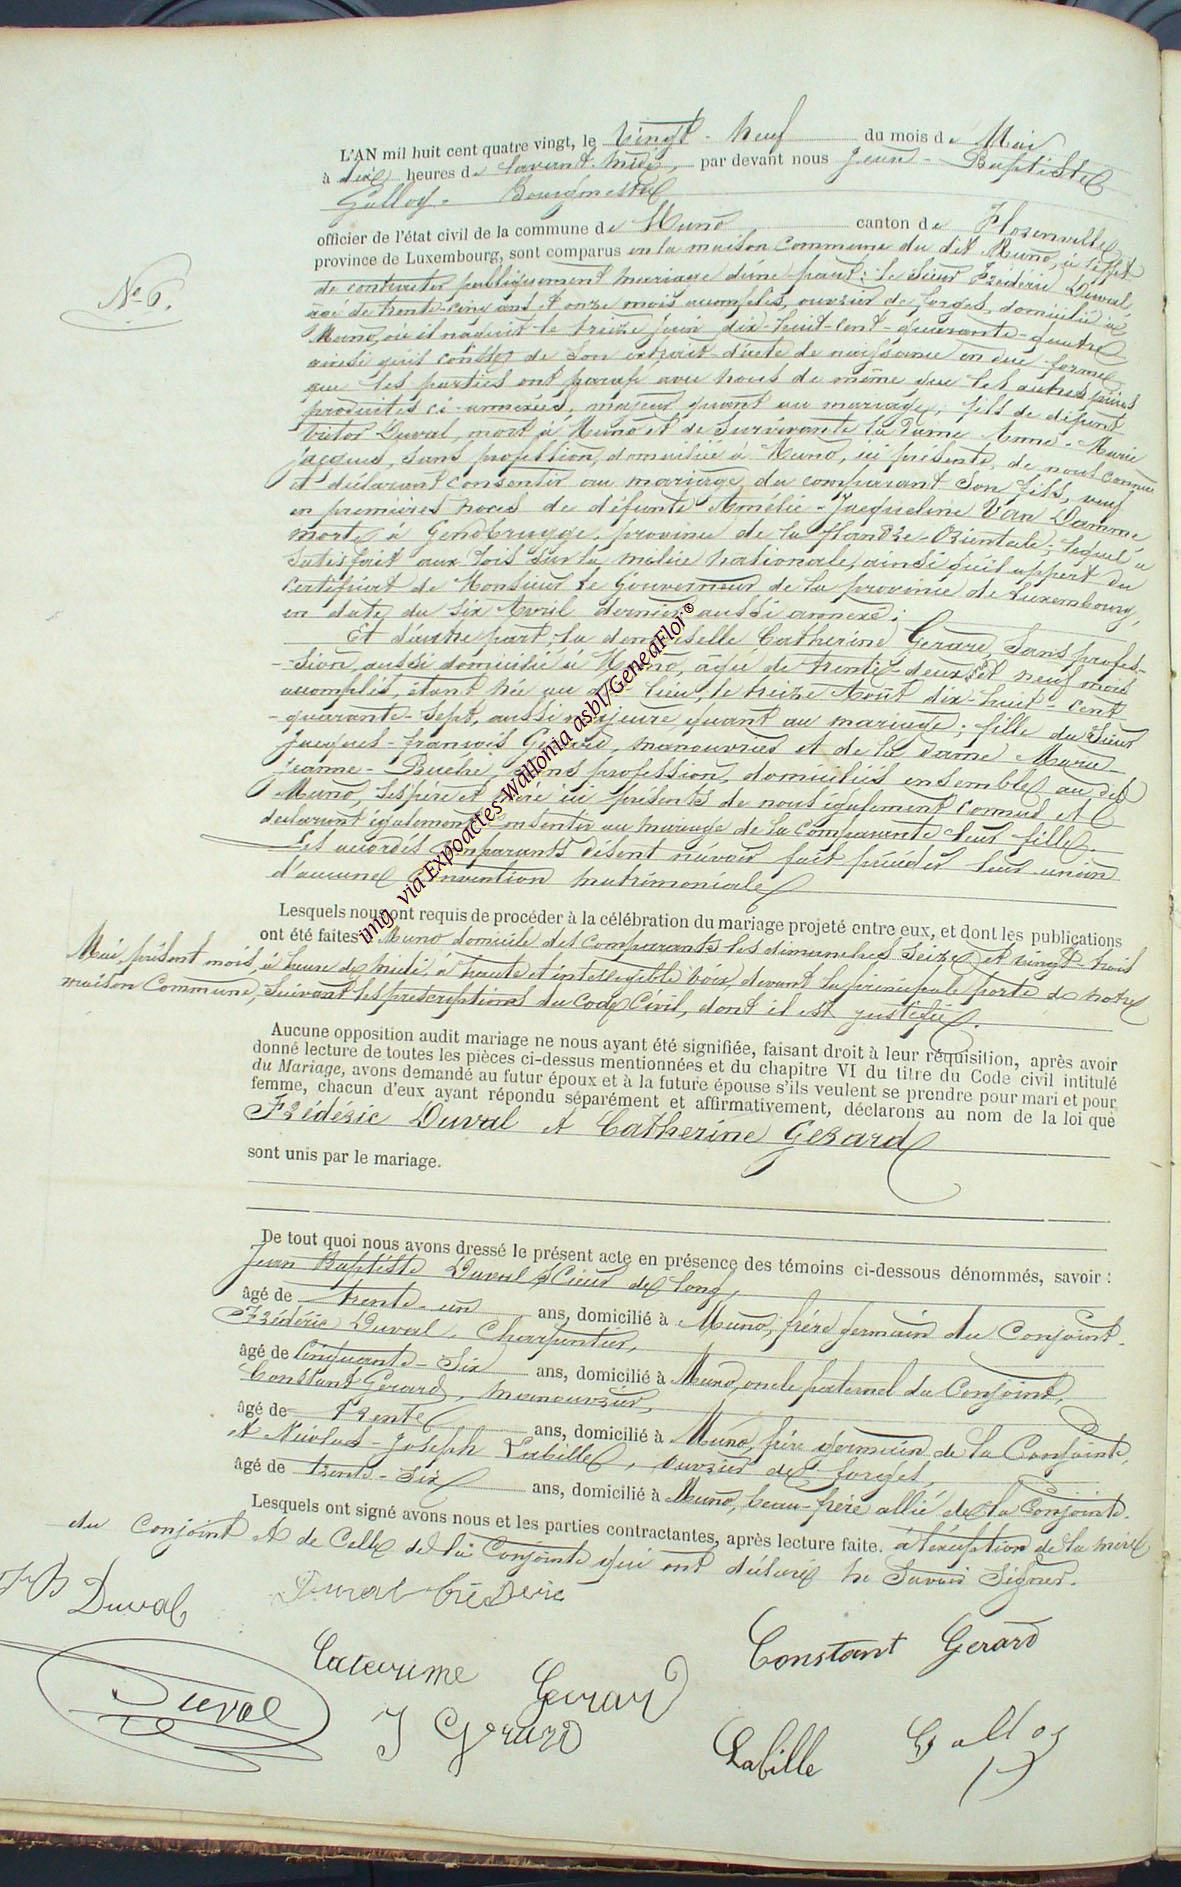 L'AN mil huit cent quatre vingt, le vingt-neuf du mois de Mai
à dix heures de l'avant-midi, par devant nous Jean-Baptiste
Galloy, Bourgmestre
officier de l'état civil de la commune de Muno canton de Florenville
province de Luxembourg, sont comparus en la maison commune du dit Muno, à l'effet
de contracter publiquement mariage d'une part: le Sieur Frédéric Duval,
N° 6.
âgé de trente-cinq ans et onze mois accomplis, ouvrier de forges, domicilié à
Muno, où il naquit le treize Juin dix-huit-cent-quarante-quatre
ainsi qu'il conste de son extrait d'acte de naissance en due forme
que les parties ont parafé avec nous de même que les autres pièces
produites ci-annexées, majeur quant au mariage, fils de défunt
Victor Duval, mort à Muno et de survivante la Dame Anne-Marie
Jacques, sans profession, domiciliée à Muno, ici présente, de nous connue
et déclarant consentir au mariage du comparant son fils, veuf
en premières noces de défunte Amélie-Jacqueline Van Damme
morte à Gendbrugge, province de la Flandre-Orientale; lequel a
satisfait aux lois sur la milice nationale, ainsi qu'il appert du
certificat de Monsieur le Gouverneur de la province de Luxembourg,
en date du six Avril dernier aussi annexé;
Et d'autre part, la demoiselle Catherine Gerard, sans profes-
-sion, aussi domiciliée à Muno, âgée de trente-deux et neuf mois
accomplis, étant née au dit lieu, le treize Août dix-huit-cent
-quarante-sept, aussi majeure quant au mariage; fille du Sieur
Jacques-François Gérard, manouvrier et de la Dame Marie-
Jeanne-Buché, sans profession, domiciliés ensemble au dit
Muno, ses père et mère ici présents de nous également connus et
déclarant également consentir au mariage de la comparante leur fille.
Les accordés comparants disent n'avoir fait précéder leur union
d'aucune convention matrimoniale
Lesquels nous ont requis de procéder à la célébration du mariage projeté entre eux, et dont les publications
ont été faites à Muno domicile des comparants les dimanches seize et vingt-trois
Mai, présent mois, à heure de midi, à haute et intelligible voix, devant la principale porte de notre
maison Commune, suivant les prescriptions du Code Civil, dont il est justifié.
Aucune opposition audit mariage ne nous ayant été signifiée, faisant droit à leur réquisition, après avoir
donné lecture de toutes les pièces ci-dessus mentionnées et du chapitre VI du titre du Code civil intitulé
du Mariage, avons demandé au futur époux et à la future épouse s'ils veulent se prendre pour mari et pour
femme, chacun d'eux ayant répondu séparément et affirmativement, déclarons au nom de la loi que
Frédéric Duval et Catherine Gerard
sont unis par le mariage.
De tout quoi nous avons dressé le présent acte en présence des témoins ci-dessous dénommés, savoir:
Jean Baptiste Duval Scieur de long,
âgé de trente-un ans, domicilié à Muno, frère germain du Conjoint.
Frédéric Duval, Charpentier,
âgé de Cinquante-Six ans, domicilié à Muno, oncle paternel du Conjoint,
Constant Gerard, manouvrier,
âgé de trente ans, domicilié à Muno, frère germain de la Conjointe,
et Nicolas-Joseph Labille, ouvrier de forges,
âgé de trente-six ans, domicilié à Muno, beau-frère allié de la Conjointe.
Lesquels ont signé avons nous et les parties contractantes, après lecture faite. à l'exception de la mère
du Conjoint et de Celle de la Conjointe qui ont déclaré ne savoir signer.
JB Duval
Duval Frederic
Constant Gerard
Caterinne Gerard
Duval
J Gerard
Labille
Galloy
img. via Expoactes-Wallonia asbl/GeneaFlor®